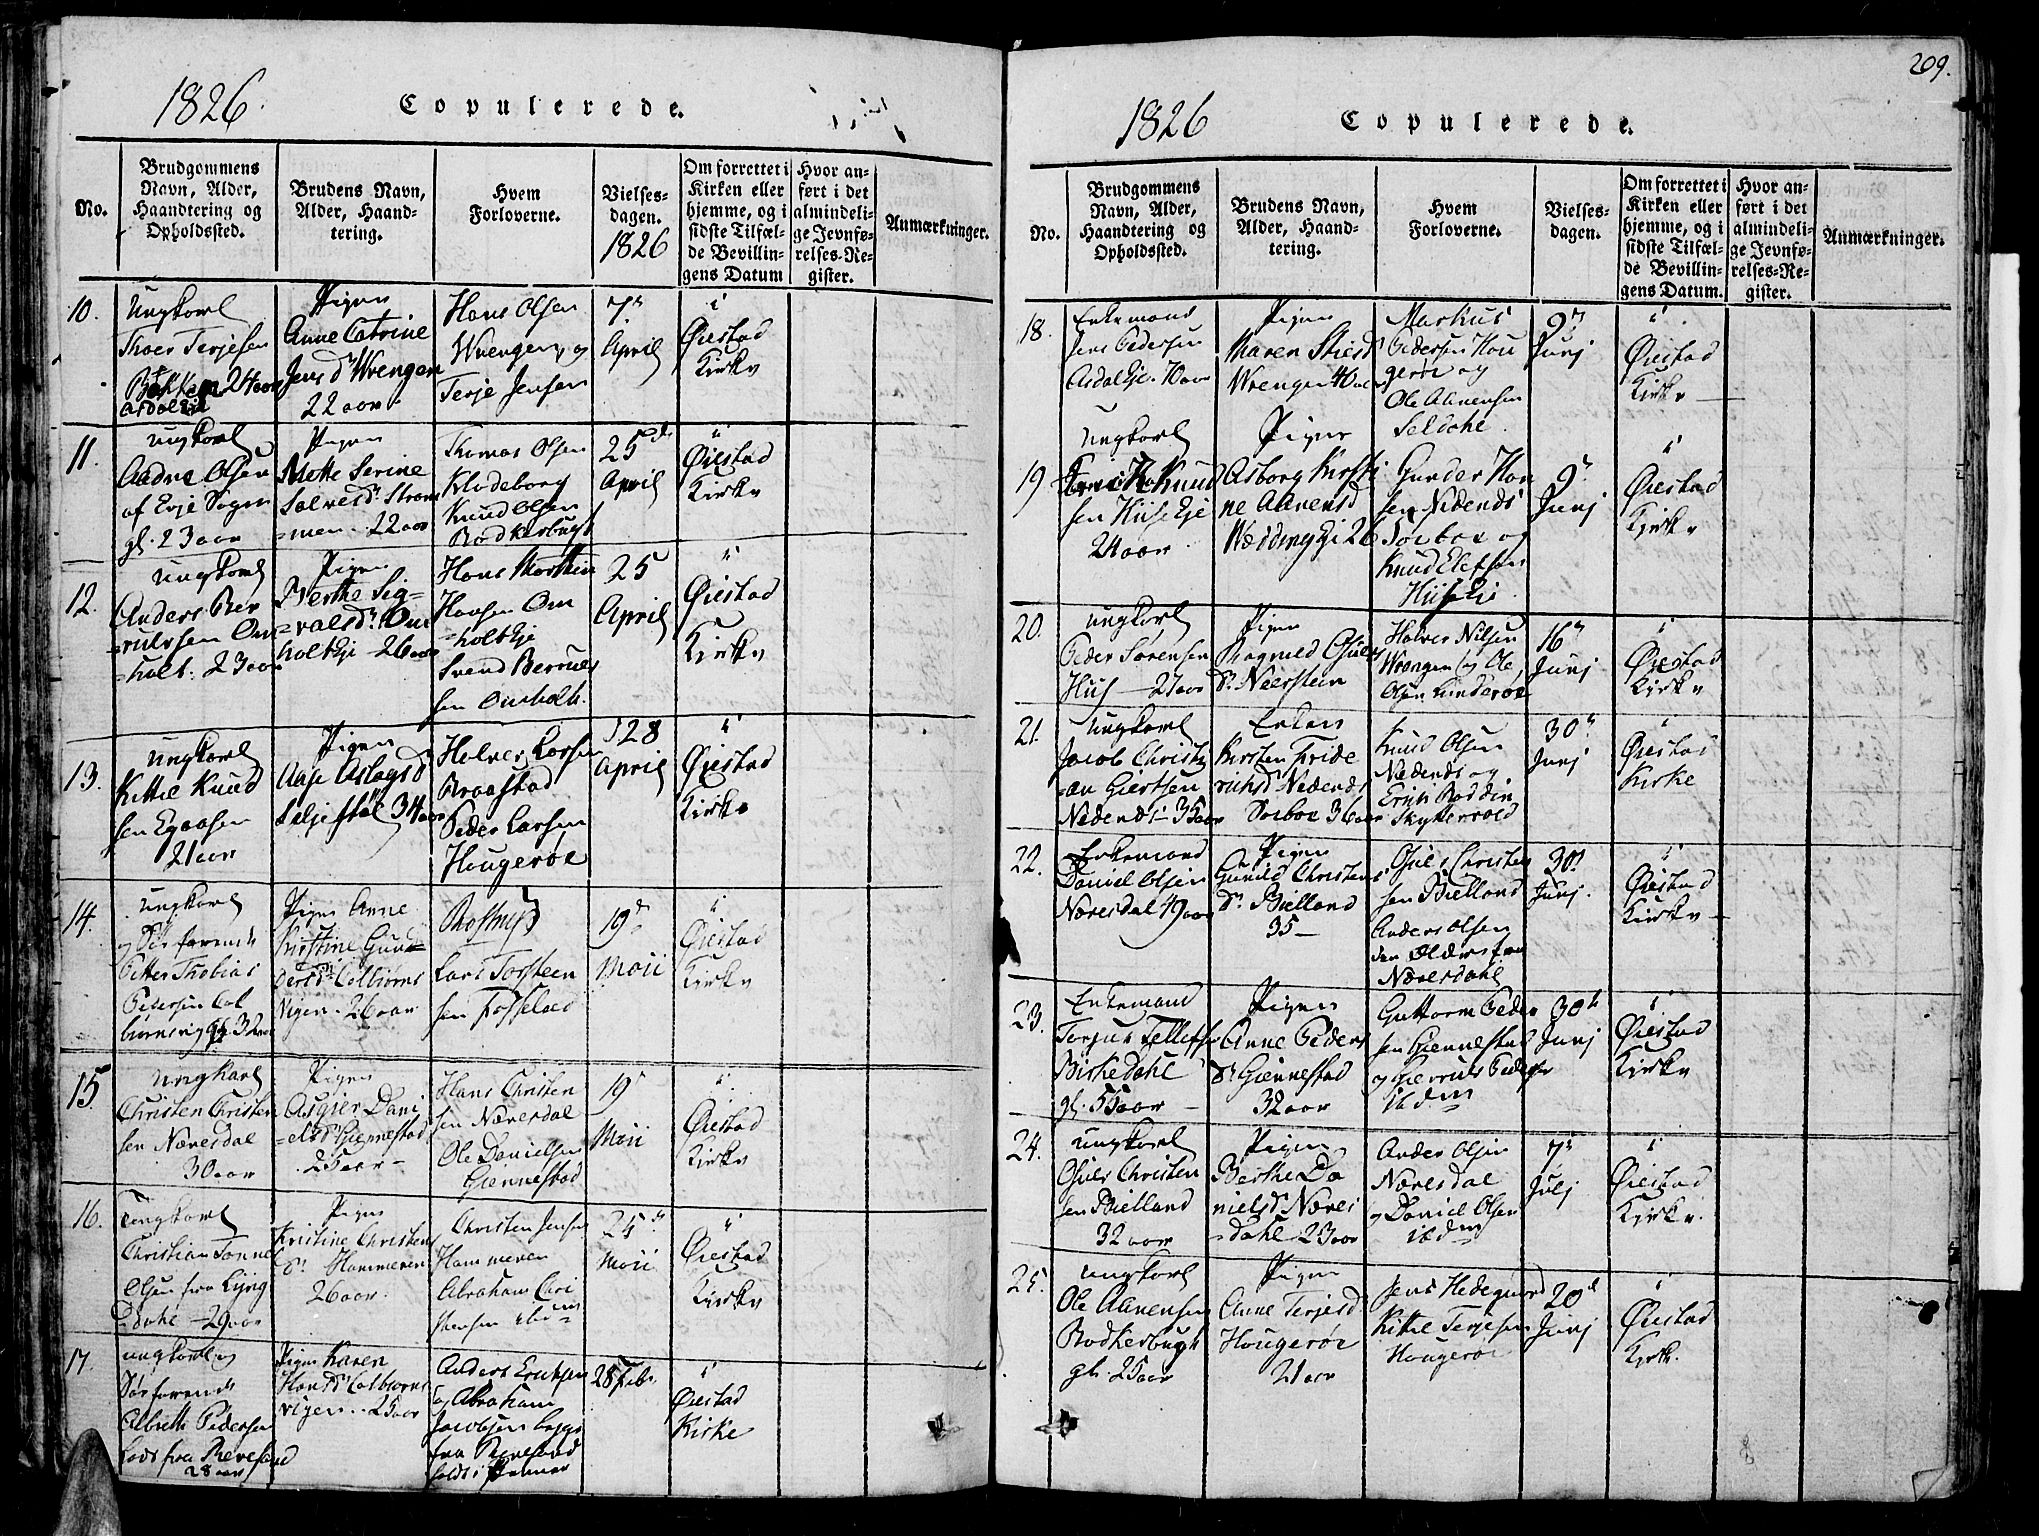 1826 Copulerede.
No.
Brudgommens
Navn, Alder,
Haandtering og
Opholdssted.
Brudens Navn,
Alder, Haand-
tering.
Hvem
Forloverne.
Vielses-
dagen.
1826
Om forrettet i
Kirken eller
hjemme, og i
sidste Tilfæl-
de Bevillin-
gens Datum
Hvor an-
ført i det
almindeli-
ge Jevnfø-
relses-Re-
gister.
Anmærkninger.
10.
Ungkarl
Thoer Terjesen
24 aar
Pigen
Anne Catrine
Jensd. Wrengen
22 aar
Hans Olsen
Wrengen og
Terje Jensen
7.
April
Øiestad
Kirke
11.
Ungkarl
Aadne Olsen
af Evje Sogn
gl. 23 aar
Pigen
Mette Serine
Salvesdr. Strøm
=men 22 aar
Thomas Olsen
Klodeborg
Knud Olsen
25
April
Øiestad
Kirke
12.
Ungkarl
Anders Ber
=rulvsen Om
=holt. 23 aar
Pigen
Berthe Sig=
=valsdr. Om
holt Eje 26 aar
Hans
Hansen Om
=holt Eje
Svend Berrulv
sen Omholt.
25
April
Øiestad
Kirke
13.
Ungkarl
Kittil Knud
sen Egaasen
21 aar
Pigen
Aase Aslagsd
34 aar
Halvor Larsen
Braastad
Peder Larsen
Hougerøe
28
April
Øiestad
Kirke
14.
Ungkarl
og Søefarende
Petter Thobias
Pedersen Col
bjørnsvig gl. 32 aar
Pigen Anne
Kristine Gun=
dersdr. Colbiørns
Vigen. 26 aar
Lars Torsteen
sen
19
Maii
Øiestad
Kirke
15.
Ungkarl
Christen Christen
sen Næresdal
30 aar
Pigen
Asgier Dani
=elsdr. Giennestad
25 aar
Hans Christen
sen Næresdal
Ole Danielsen
Giennestad
19
Maii
Øiestad
Kirke
16.
Ungkarl
Christian Tønnes
Olsen fra Lyng
Dahl 29 aar
Pigen
Kristine Christens
dr. Hammeren
26 aar
Christen Jensen
Hammeren
Abraham Chri
stensen ibid
25
Maii
Øiestad
Kirke
17.
Ungkarl og
Søefarende
Albreth Pedersen
Lods fra Revesand
28 aar
Pigen Karen
Hansdr. Colbiørns
vigen. 25 aar
Anders Erichsen
og Abraham
Jacobsen begge
fra Revesand
28 Feb.
Øiestad
Kirke
209.
1826 Copulerede.
No.
Brudgommens
Navn, Alder,
Haandtering og
Opholdssted.
Brudens Navn,
Alder, Haand-
tering.
Hvem
Forloverne.
Vielses-
dagen.
Om forrettet i
Kirken eller
hjemme, og i
sidste Tilfæl-
de Bevillin-
gens Datum.
Hvor an-
ført i det
almindeli-
ge Jevnfø-
relses-Re-
gister.
Anmærkninger.
18.
Enkemand
Jens Pedersen
Asdal Eje. 70 aar
Pigen
Maren
Wrengen 40 aar
Markus
Pedersen Hou
gerøe og
Ole Aanensen
Seldahl.
9
Junj
Øiestad
Kirke
19
Ungkarl
Knud
sen Huse Eje
24 aar
Pigen
Asborg Kirsti
ne Aanensd
26
Gunder Han
sen Nedenes
Sørboe og
Knud Elefsen
Huse Eje
9
Junj
Øiestad
Kirke
20.
Ungkarl
Peder Sørensen
Hus 27 aar
Pigen
Ragnild Osuls
dr. Neersteen
Halvor Nilsen
Wrengen og Ole
Olsen Lunderøe
16
Junj
Øiestad
Kirke
21.
Ungkarl
Jacob Christi
=an Giertsen
Nedenes 35 aar
Enken
Kirsten Fride
richsd Nedenes
Sørboe 36 aar
Knud Olsen
Nedenes og
Erich Boddin
30
Junj
Øiestad
Kirke
22.
Enkemand
Daniel Olsen
Næresdal 49 aar
Pigen
Gunild Christens
dr. Bielland
35
Osul Christen
sen Bielland
Anders Olsen
den Ældere fra
Næresdahl
30
Junj.
Øiestad
Kirke
23.
Enkemand
Terjus Tellefs
Birkedahl
gl. 55 aar
Pigen
Anne Peders
dr. Giennestad
32 aar
Guttorm Peder
sen Giennestad
og Pedersen
ibdm
30
Junj
Øiestad
Kirke
24.
Ungkarl
Osul Christen
sen Bielland
32 aar
Pigen
Berthe Da
nielsd Næres
=dahl 23 aar
Anders Olsen
Næresdal
og Daniel Olsen
ibdm
7
Julj
Øiestad
Kirke.
25.
Ungkarl
Ole Aanensen
Rødkerbugt
gl. 25 aar
Pigen
Anne Terjesd
Hougerøe
21 aar
Jens Hedegaard
Kittil Terjesen
Hougerøe
20
Junj
Øiestad
Kirke.